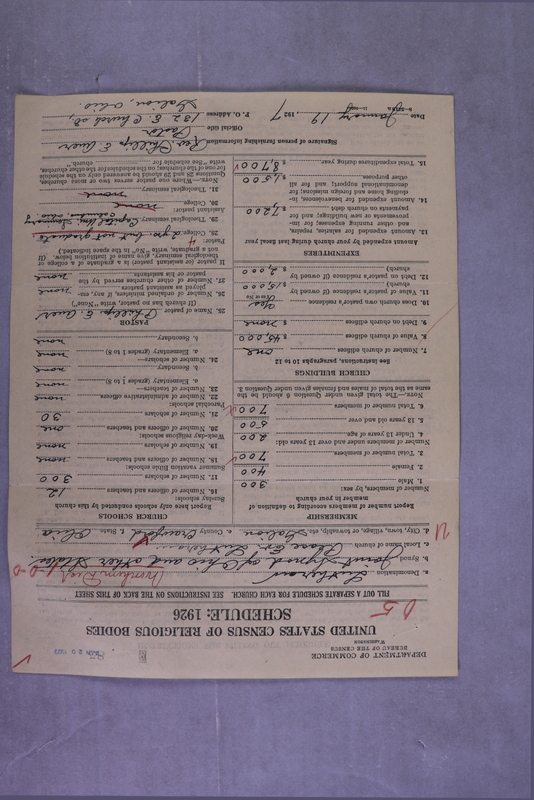 DEPARTMENT OF COMMERCE
BUREAU OF THE CENSUS
WASHINGTON
UNITED STATES CENSUS OF RELIGIOUS BODIES
SCHEDULE: 1926
FILL OUT A SEPARATE SCHEDULE FOR EACH CHURCH. SEE INSTRUCTIONS ON THE BACK OF THIS SHEET
a. Denomination Lutheran
b. Synod Joint Synod of Ohio and other States
c. Local name of church Peace Ev. Lutheran
d. City, town, village, or township, etc. Galion e. County Crawford f. State Ohio
MEMBERSHIP
Report number of members according to definition of member in your church
Number of members, by sex:
1. Male 300
2. Female 400
3. Total number of members 700
Number of members under and over 13 years old:
4. Under 13 years of age 200
5. 13 years old and over 500
6. Total number of members 700
Note.—The total given under Question 6 should be the same as the total of males and females given under Question 3.
CHURCH BUILDINGS
See instructions, paragraphs 10 to 12
7. Number of church edifices one
8. Value of church edifices $ 45,000
9. Debt on church edifices $ none
10. Does church own pastor's residence Yes
(Yes or No)
11. Value of pastor's residence (if owned by church) $ 15,000
12. Debt on pastor's residence (if owned by church) $ 2,000
EXPENDITURES
Amount expended by your church during last fiscal year
13. Amount expended for salaries, repairs, and other running expenses; for improvements or new buildings; and for payments on church debt $ 7,200
14. Amount expended for benevolences, including home and foreign missions; for denominational support; and for all other purposes $ 1,500
15. Total expenditures during year $ 8,700
CHURCH SCHOOLS
Report here only schools conducted by this church
Sunday schools:
16. Number of officers and teachers 12
17. Number of scholars 300
Summer vacation Bible schools:
18. Number of officers and teachers none
19. Number of scholars none
Week-day religious schools:
20. Number of officers and teachers one
21. Number of scholars 30
Parochial schools:
22. Number of administrative officers none
23. Number of teachers—
a. Elementary (grades 1 to 8) none
b. Secondary none
24. Number of scholars—
a. Elementary (grades 1 to 8) none
b. Secondary none
PASTOR
25. Name of pastor Phillip E. Auer
(If church has no pastor, write "None")
26. Number of ordained ministers, if any, employed as assistant pastors none
27. Number of other churches served by the pastor or his assistants none
If pastor (or assistant pastor) is a graduate of a college or theological seminary, give name of institution below. (If not a graduate, write "No" in the space indicated.)
Pastor:
28. College
29. Theological seminary
Assistant pastor:
30. College none
31. Theological seminary none
Note.—Where one pastor serves two or more churches, Questions 28 and 29 should be answered only on the schedule for one of the churches; on the schedules for the other churches, write "See schedule for church."
Signature of person furnishing information Rev Phillip E. Auer
Official title Pastor
Date January 19, 1927 P. O. Address 132 E. Church St,
Galion, Ohio.